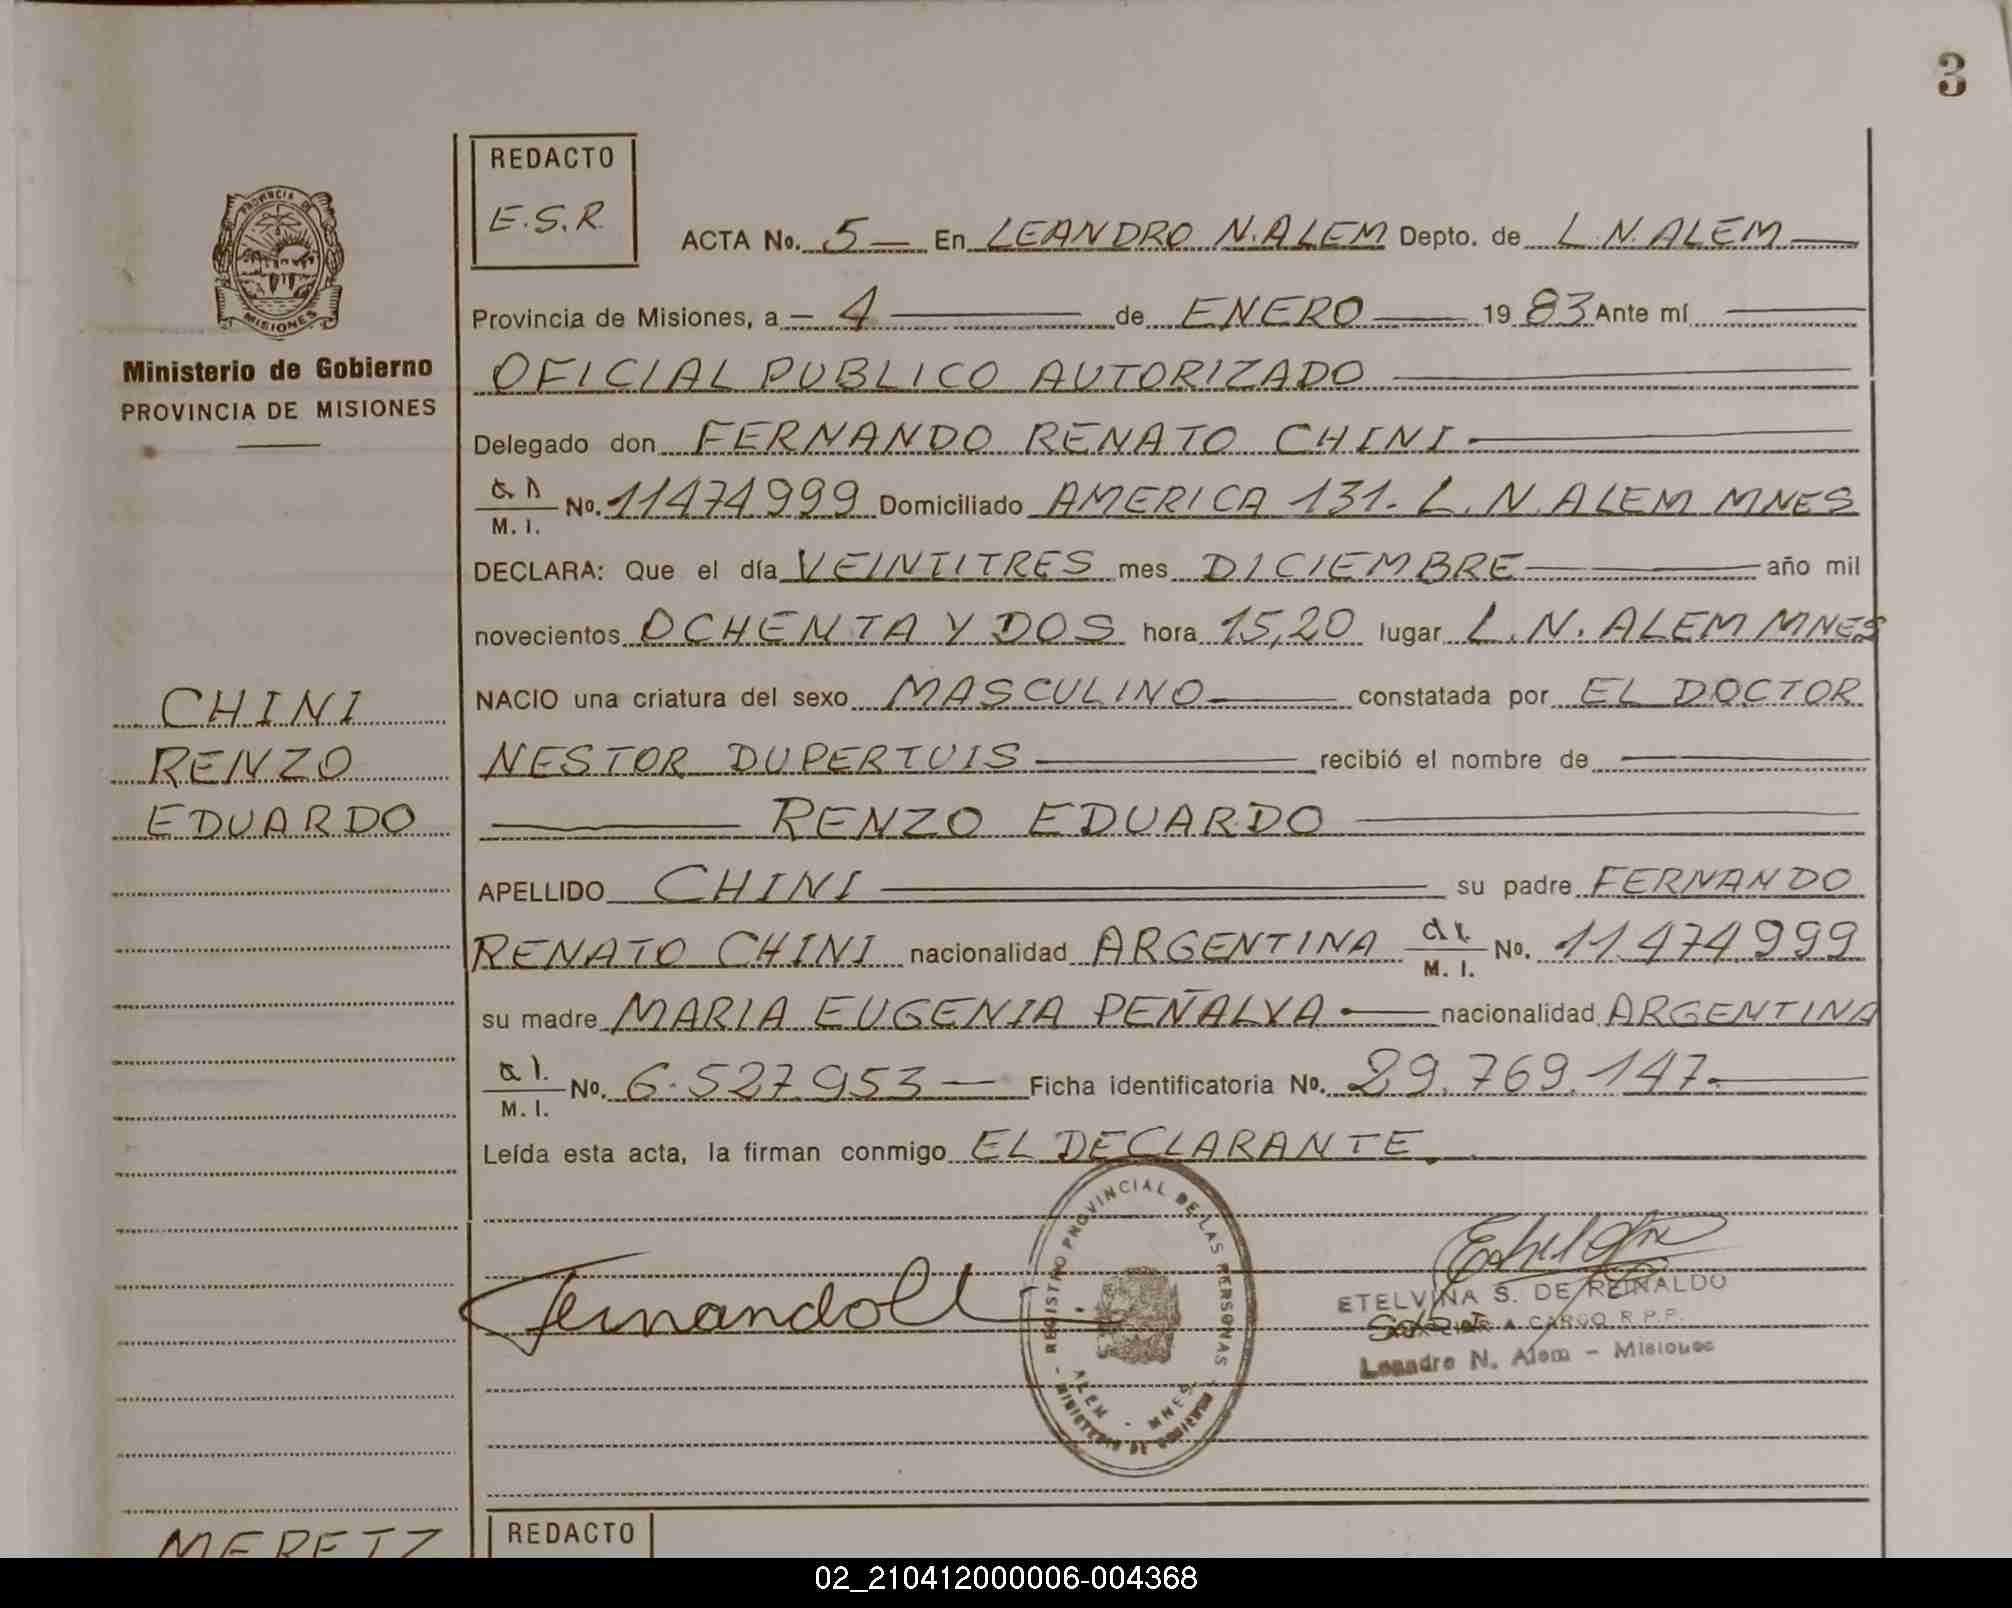 3
REDACTO
E.S.R.
ACTA No. 5 En LEANDRO N. ALEM Depto. de L. N. ALEM
PROVINCIA DE
MISIONES
Provincia de Misiones, a 4 de ENERO 1983 Ante mí
Ministerio de Gobierno
PROVINCIA DE MISIONES
OFICIAL PUBLICO AUTORIZADO
Delegado don FERNANDO RENATO CHINI
M. I. No. 11474999 Domiciliado AMERICA 131. L. N. ALEM MNES
DECLARA: Que el día VEINTITRES mes DICIEMBRE año mil
novecientos OCHENTA Y DOS hora 15,20 lugar L. N. ALEM MNES
CHINI
RENZO
EDUARDO
NACIO una criatura del sexo MASCULINO constatada por EL DOCTOR
NESTOR DUPERTUIS recibió el nombre de
RENZO EDUARDO
APELLIDO CHINI su padre FERNANDO
RENATO CHINI nacionalidad ARGENTINA M. I. No. 11.474.999
su madre MARIA EUGENIA PEÑALVA nacionalidad ARGENTINA
M. I. No. 6.527.953 Ficha identificatoria No. 29.769.147
Leída esta acta, la firman conmigo EL DECLARANTE.
REGISTRO PROVINCIAL DE LAS PERSONAS
ALEM - MNES
MINISTERIO DE GOBIERNO
Fernando
ETELVINA S. DE REINALDO
A CARGO R.P.P.
Leandro N. Alem - Misiones
MERETZ
REDACTO
02_210412000006-004368